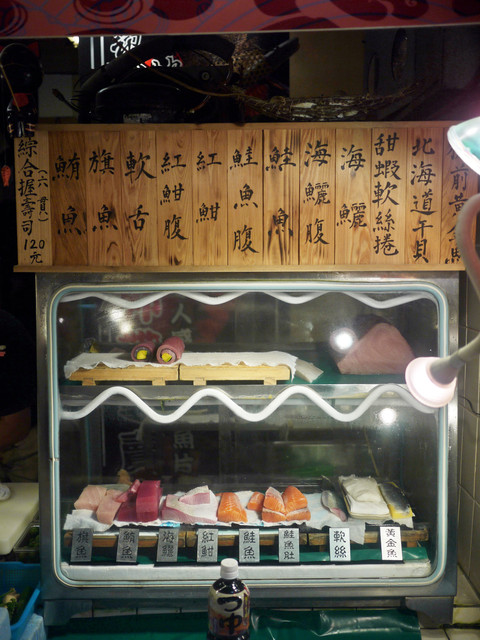 北海道干貝
甜蝦軟絲捲
海鱺
海鱺腹
鮭魚
鮭魚腹
紅魽
紅魽腹
軟舌
旗魚
鮪魚
綜合握壽司(六貫)120元
旗魚
鮪魚
海鱺
紅魽
鮭魚
鮭魚肚
軟絲
黃金魚
つゆ